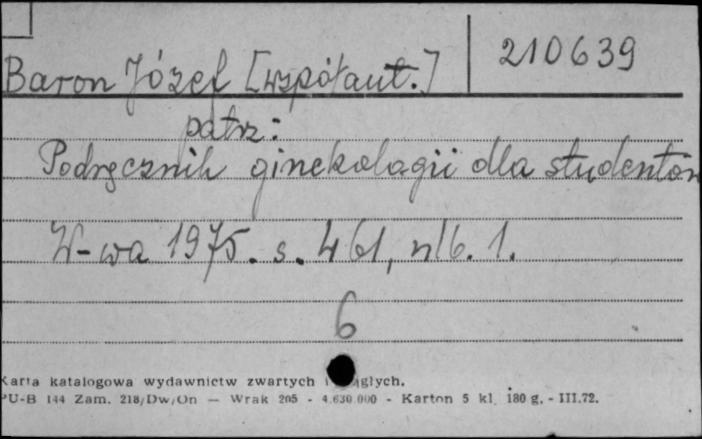 Baron Józef [współaut.] 210639
patrz:
Podręcznik ginekologii dla studentów
W-wa 1975. s. 461, nlb. 1.
6
Karta katalogowa wydawnictw zwartych i ciągłych.
PU-B 144 Zam. 218/Dw/On — Wrak 205 - 4.630.000 - Karton 5 kl. 180 g. - III.72.